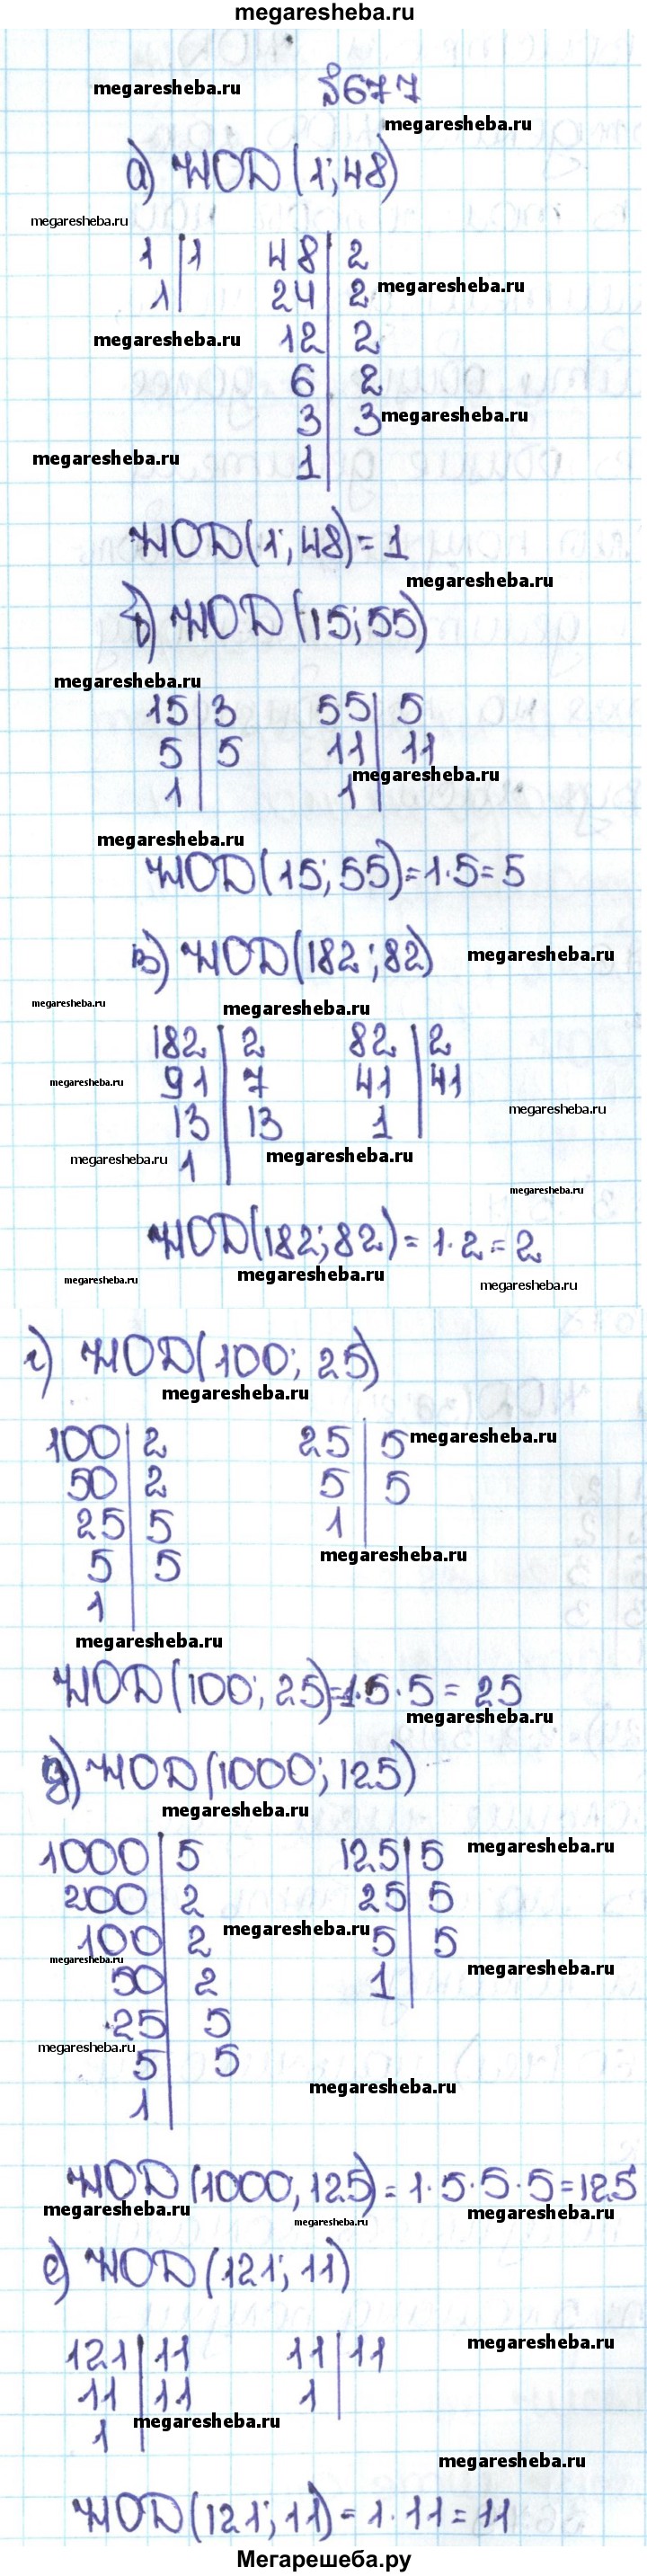 megaresheba.ru
megaresheba.ru
№677
megaresheba.ru
а) НОД(1;48)
megaresheba.ru
1|1 48|2
1| 24|2 megaresheba.ru
megaresheba.ru 12|2
6|2
3|3 megaresheba.ru
megaresheba.ru 1|
НОД(1;48)=1
megaresheba.ru
б) НОД(15;55)
megaresheba.ru
15|3 55|5
5|5 11|11
megaresheba.ru
1| 1|
megaresheba.ru
НОД(15;55)=1·5=5
в) НОД(182;82) megaresheba.ru
megaresheba.ru megaresheba.ru
182|2 82|2
megaresheba.ru 91|7 41|41
megaresheba.ru
13|13 1|
megaresheba.ru 1| megaresheba.ru
megaresheba.ru
НОД(182;82)=1·2=2
megaresheba.ru megaresheba.ru megaresheba.ru
г) НОД(100;25)
megaresheba.ru
100|2 25|5 megaresheba.ru
50|2 5|5
25|5 1|
megaresheba.ru
5|5
1|
megaresheba.ru
НОД(100;25)=1·5·5=25
megaresheba.ru
д) НОД(1000;125)
megaresheba.ru
1000|5 125|5 megaresheba.ru
200|2 25|5
megaresheba.ru
100|2 5|5
megaresheba.ru megaresheba.ru
50|2 1|
25|5
megaresheba.ru 5|5
megaresheba.ru
1|
НОД(1000,125)=1·5·5·5=125
megaresheba.ru megaresheba.ru megaresheba.ru
е) НОД(121;11)
121|11 11|11 megaresheba.ru
11|11 1|
megaresheba.ru
1|
megaresheba.ru
НОД(121;11)=1·11=11
Мегарешеба.ру